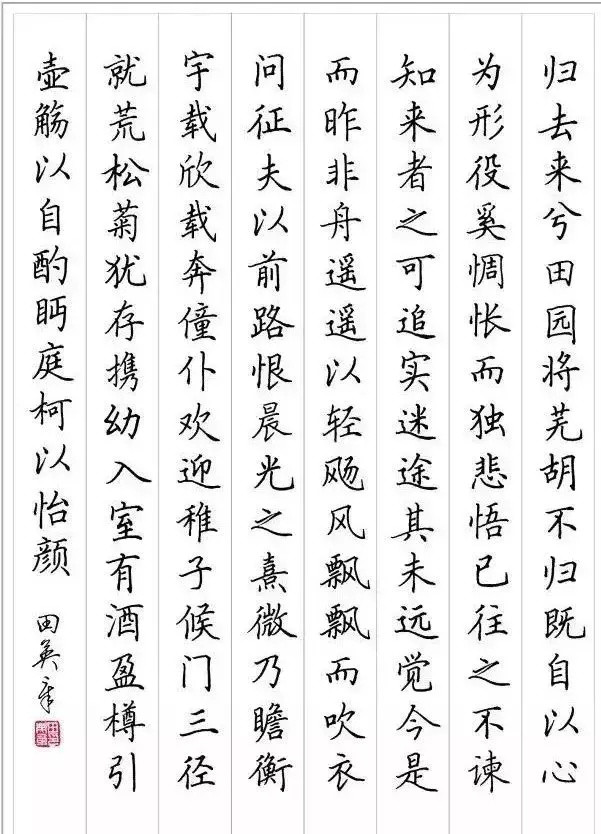 归去来兮田园将芜胡不归既自以心
为形役奚惆怅而独悲悟已往之不谏
知来者之可追实迷途其未远觉今是
而昨非舟遥遥以轻飏风飘飘而吹衣
问征夫以前路恨晨光之熹微乃瞻衡
宇载欣载奔僮仆欢迎稚子候门三径
就荒松菊犹存携幼入室有酒盈樽引
壶觞以自酌眄庭柯以怡颜
田英章